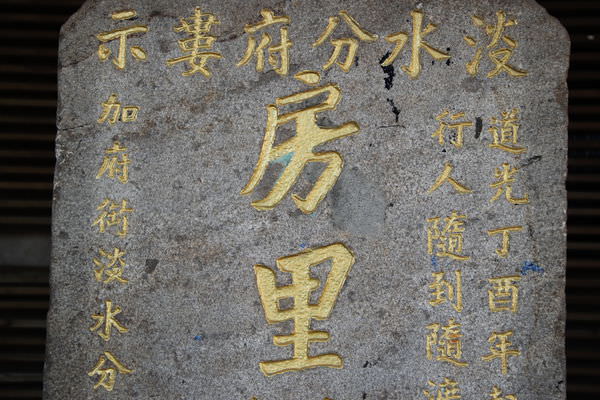 淡水分府婁示
道光丁酉年
行人隨到隨
房里
加府銜淡水分